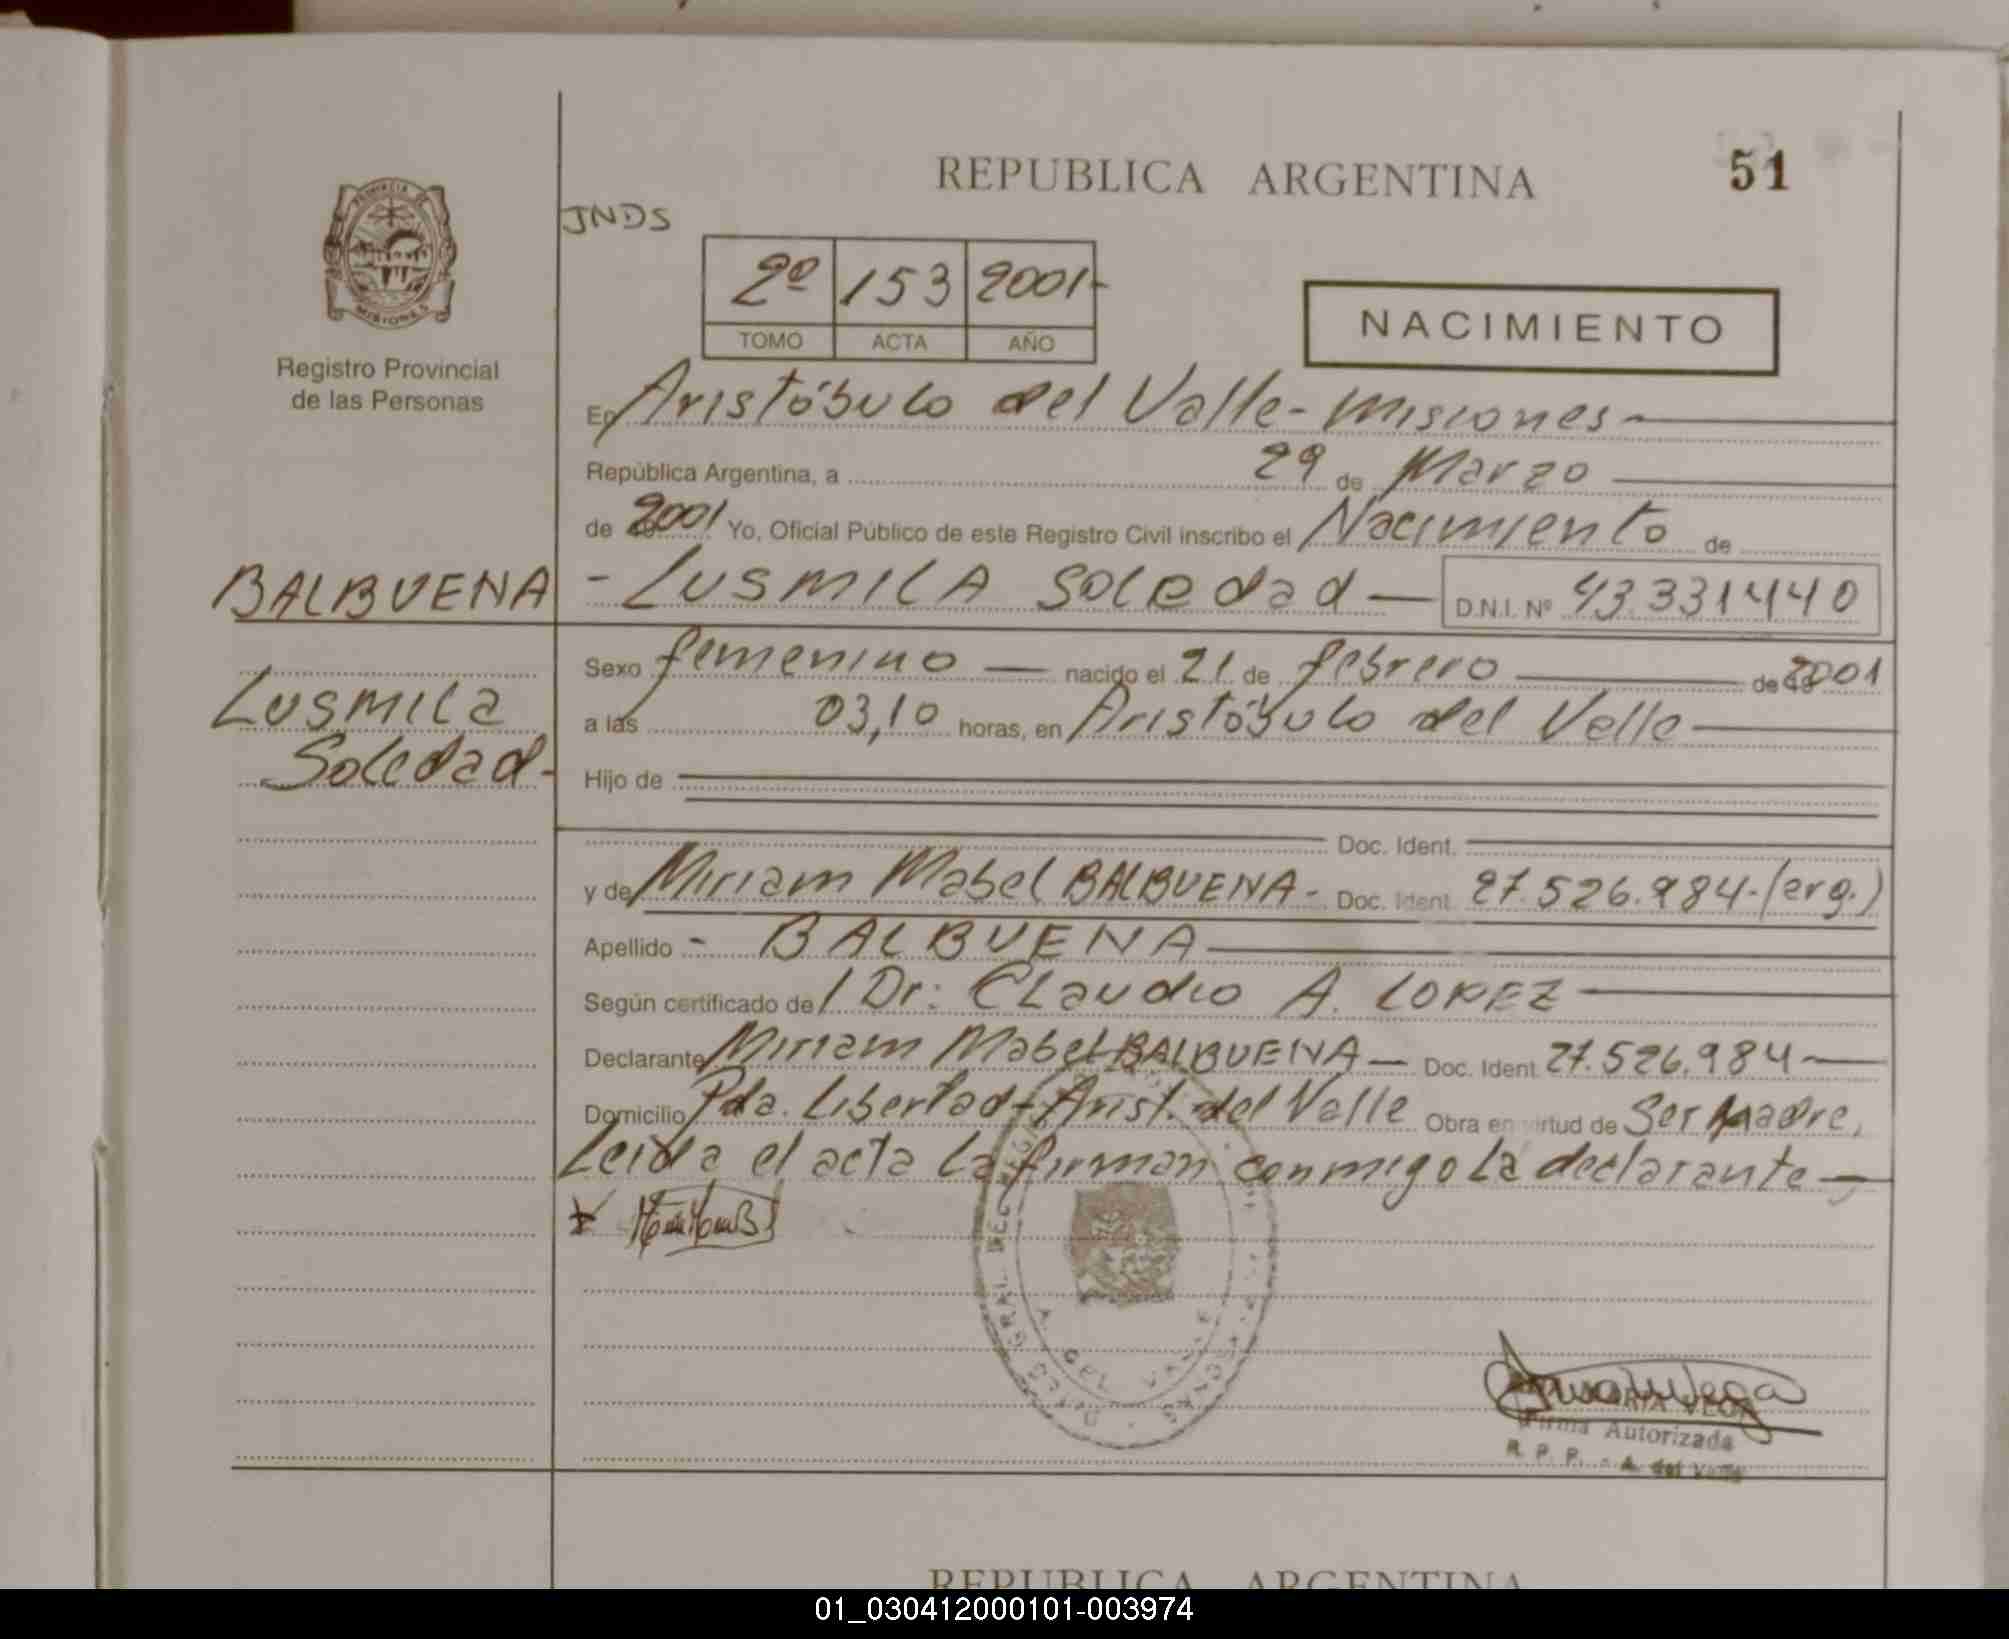 REPUBLICA ARGENTINA
51
PROVINCIA DE
MISIONES
Registro Provincial
de las Personas
JNDS
2º 153 2001-
TOMO ACTA AÑO
NACIMIENTO
En Aristóbulo del Valle - Misiones -
República Argentina, a 29 de Marzo
de 2001 Yo, Oficial Público de este Registro Civil inscribo el Nacimiento de
BALBUENA
- LUSMILA SOLEDAD - D.N.I. Nº 43.331440
Lusmila
Soledad-
Sexo femenino nacido el 21 de febrero de 2001
a las 03,10 horas, en Aristóbulo del Valle
Hijo de
Doc. Ident.
y de Miriam Mabel BALBUENA - Doc. Ident. 27.526.984-(arg.)
Apellido - BALBUENA
Según certificado de / Dr: Claudio A. LOPEZ
Declarante Miriam Mabel BALBUENA - Doc. Ident. 27.526.984
Domicilio Pda. Libertad - Arist. del Valle Obra en virtud de Ser Madre,
Leida el acta la firman conmigo la declarante
A. DEL VALLE
VEGA
Firma Autorizada
R. P. P. - A. del Valle
REPUBLICA ARGENTINA
01_030412000101-003974